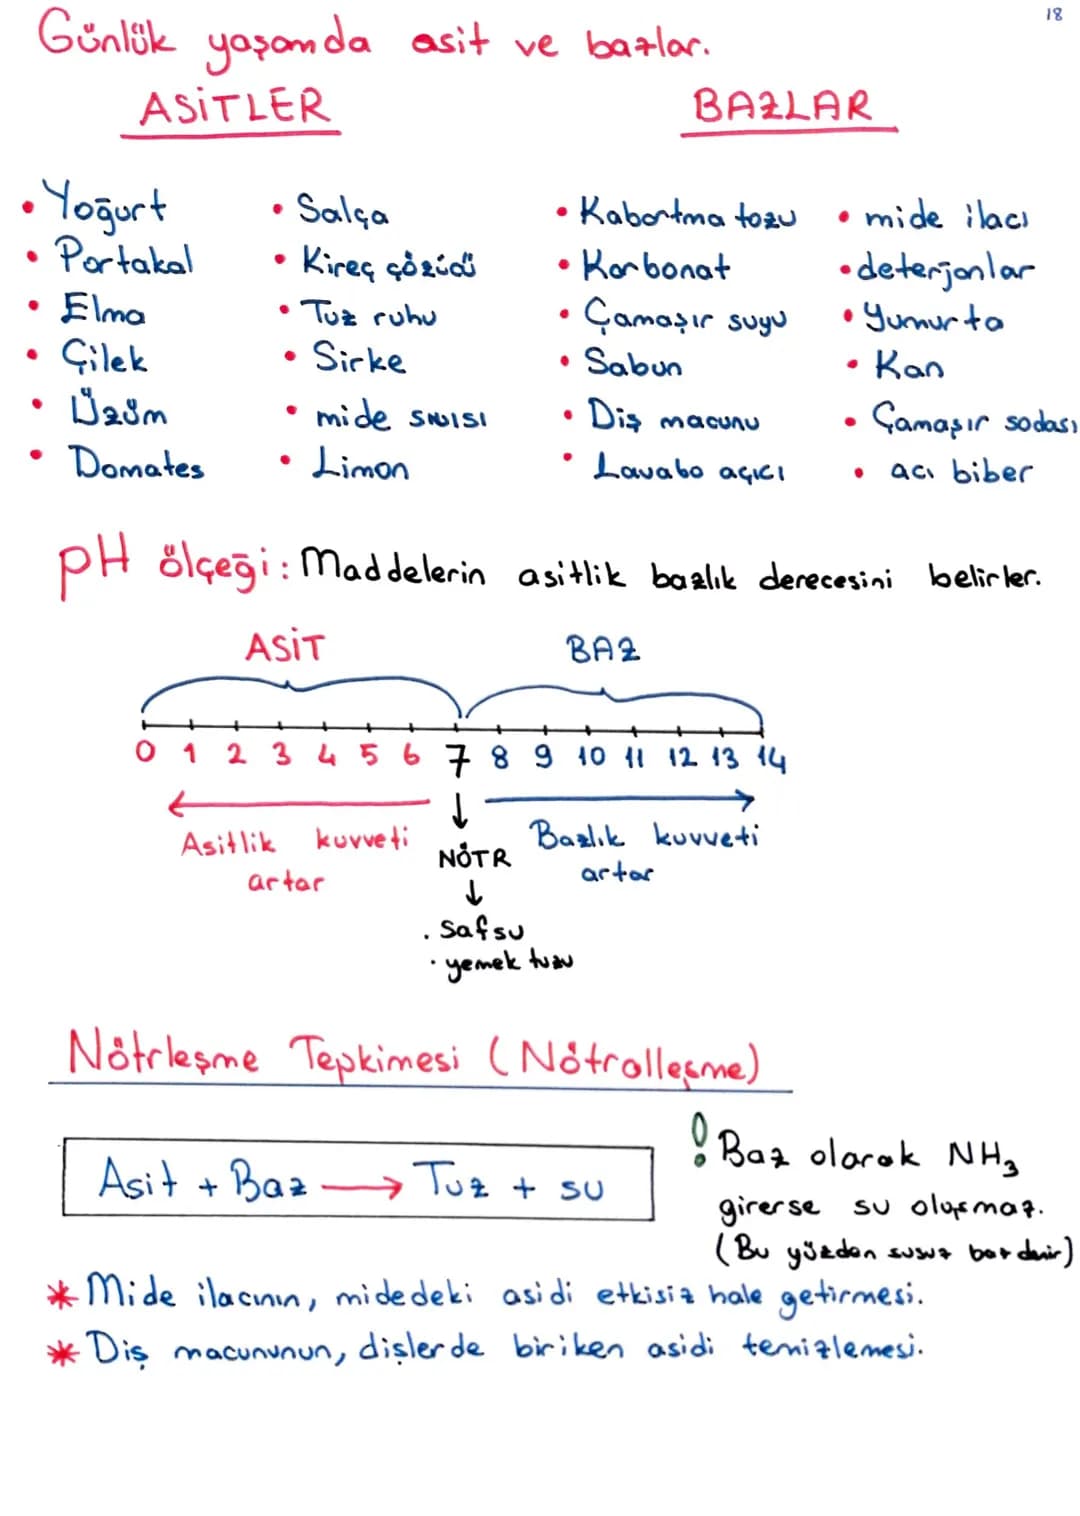 18
Günlük yaşamda asit ve bazlar.
ASİTLER
BAZLAR
• Yoğurt
• Portakal
• Elma
• Çilek
• Üzüm
• Domates
• Salça
• Kireç çözücü
• Tuz ruhu
• Sirke
• mide sıvısı
• Limon
• Kabartma tozu
• Karbonat
• Çamaşır suyu
• Sabun
• Diş macunu
• Lavabo açıcı
• mide ilacı
• deterjanlar
• Yumurta
• Kan
• Çamaşır sodası
• acı biber
pH ölçeği: Maddelerin asitlik bazlık derecesini belirler.
ASİT BAZ
0 1 2 3 4 5 6 7 8 9 10 11 12 13 14
Asitlik kuvveti
artar
↓
NÖTR
↓
. Saf su
. yemek tuzu
Bazlık kuvveti
artar
Nötrleşme Tepkimesi (Nötralleşme)
Asit + Baz → Tuz + su
! Baz olarak NH₃
girerse su oluşmaz.
(Bu yüzden susuz baz denir)
* Mide ilacının, midedeki asidi etkisiz hale getirmesi.
* Diş macununun, dişlerde biriken asidi temizlemesi.